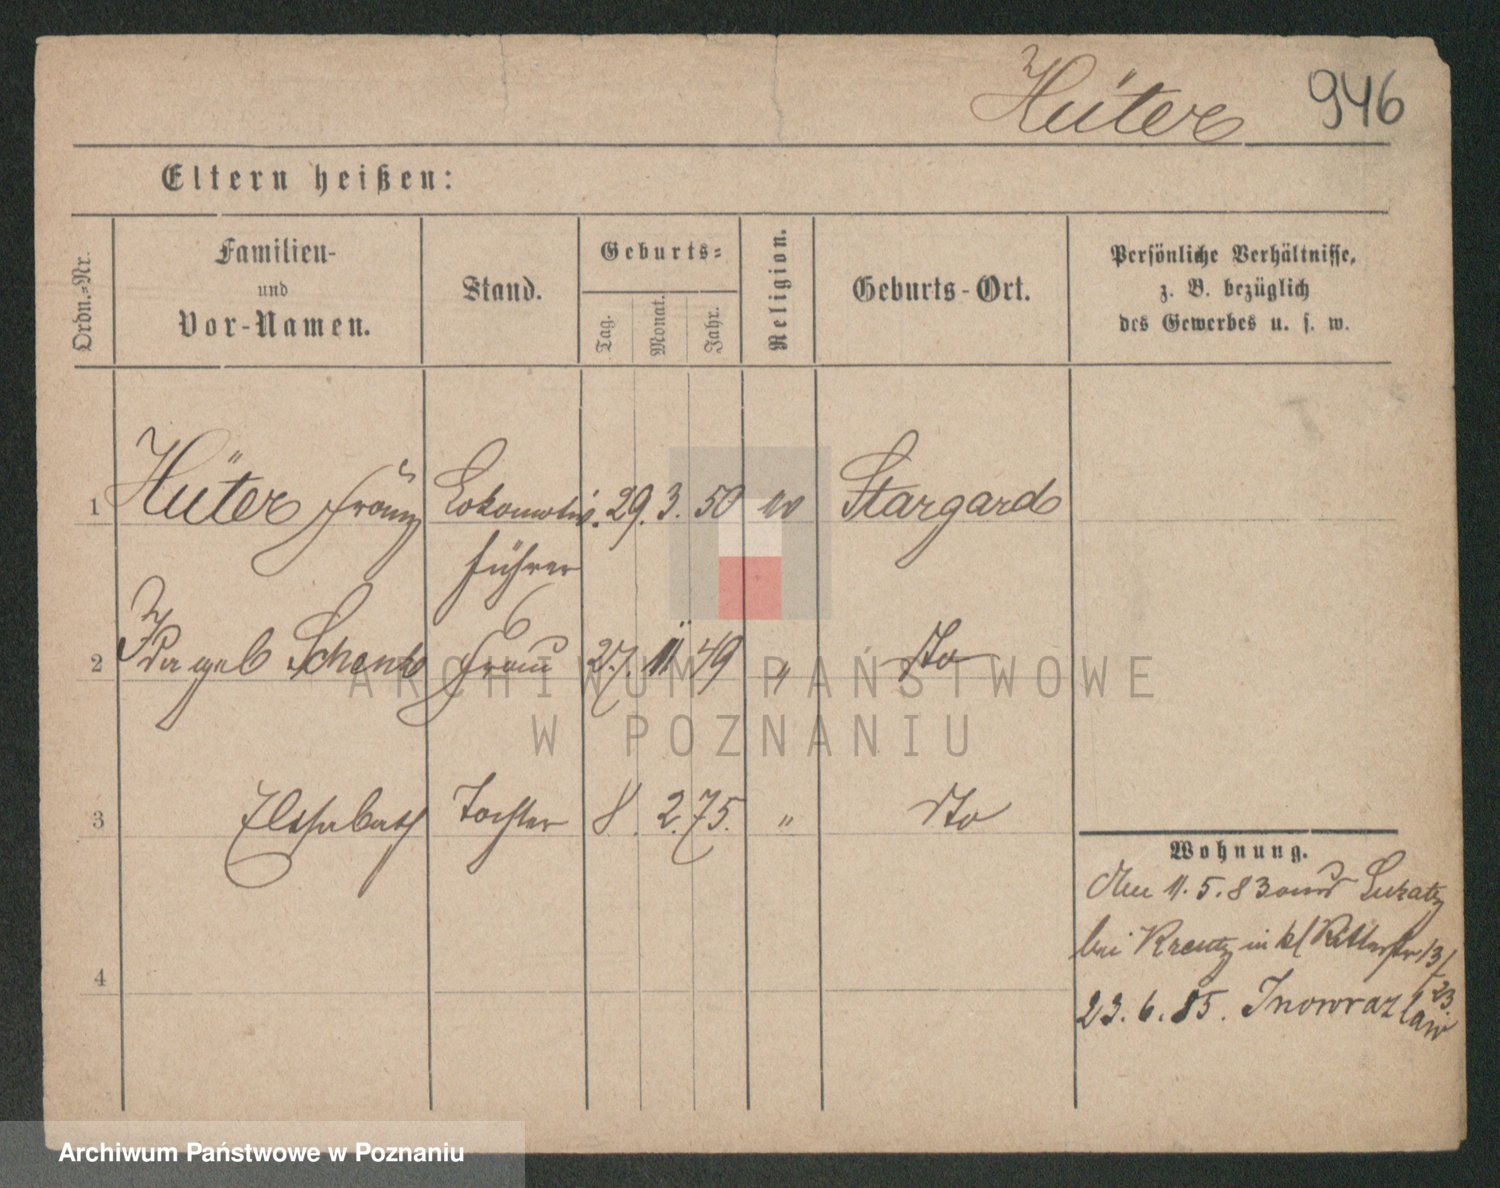 Hüter 946
Eltern heißen:
Ordn.-Nr.
Familien-
und
Vor-Namen.
Stand.
Geburts-
Tag.
Monat.
Jahr.
Religion.
Geburts-Ort.
Persönliche Verhältnisse,
z. B. bezüglich
des Gewerbes u. s. w.
1 Hüter Franz Lokomotiv. 29. 3. 50 ev Stargard
führer
2 Ida geb Schenk Frau 27. 11 49 " dto
3 Elisabeth Tochter 8. 2. 75. " dto
4
Wohnung.
den 11. 5. 83 Lukatz
bei Kreutz in kl Ritterstr 13/
23.
23. 6. 85. Inowrazlaw
ARCHIWUM PAŃSTWOWE
W POZNANIU
Archiwum Państwowe w Poznaniu